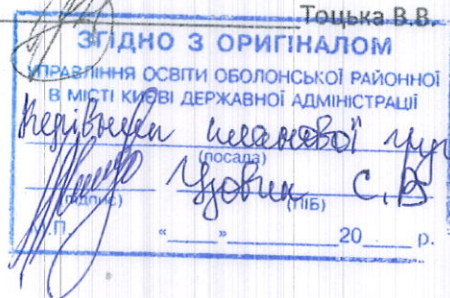 Тоцька В.В.
ЗГІДНО З ОРИГІНАЛОМ
УПРАВЛІННЯ ОСВІТИ ОБОЛОНСЬКОЇ РАЙОННОЇ
В МІСТІ КИЄВІ ДЕРЖАВНОЇ АДМІНІСТРАЦІЇ
Керівник планової гру
(посада)
С.В
(підпис) (ПІБ)
М.П. "___" ________ 20___ р.